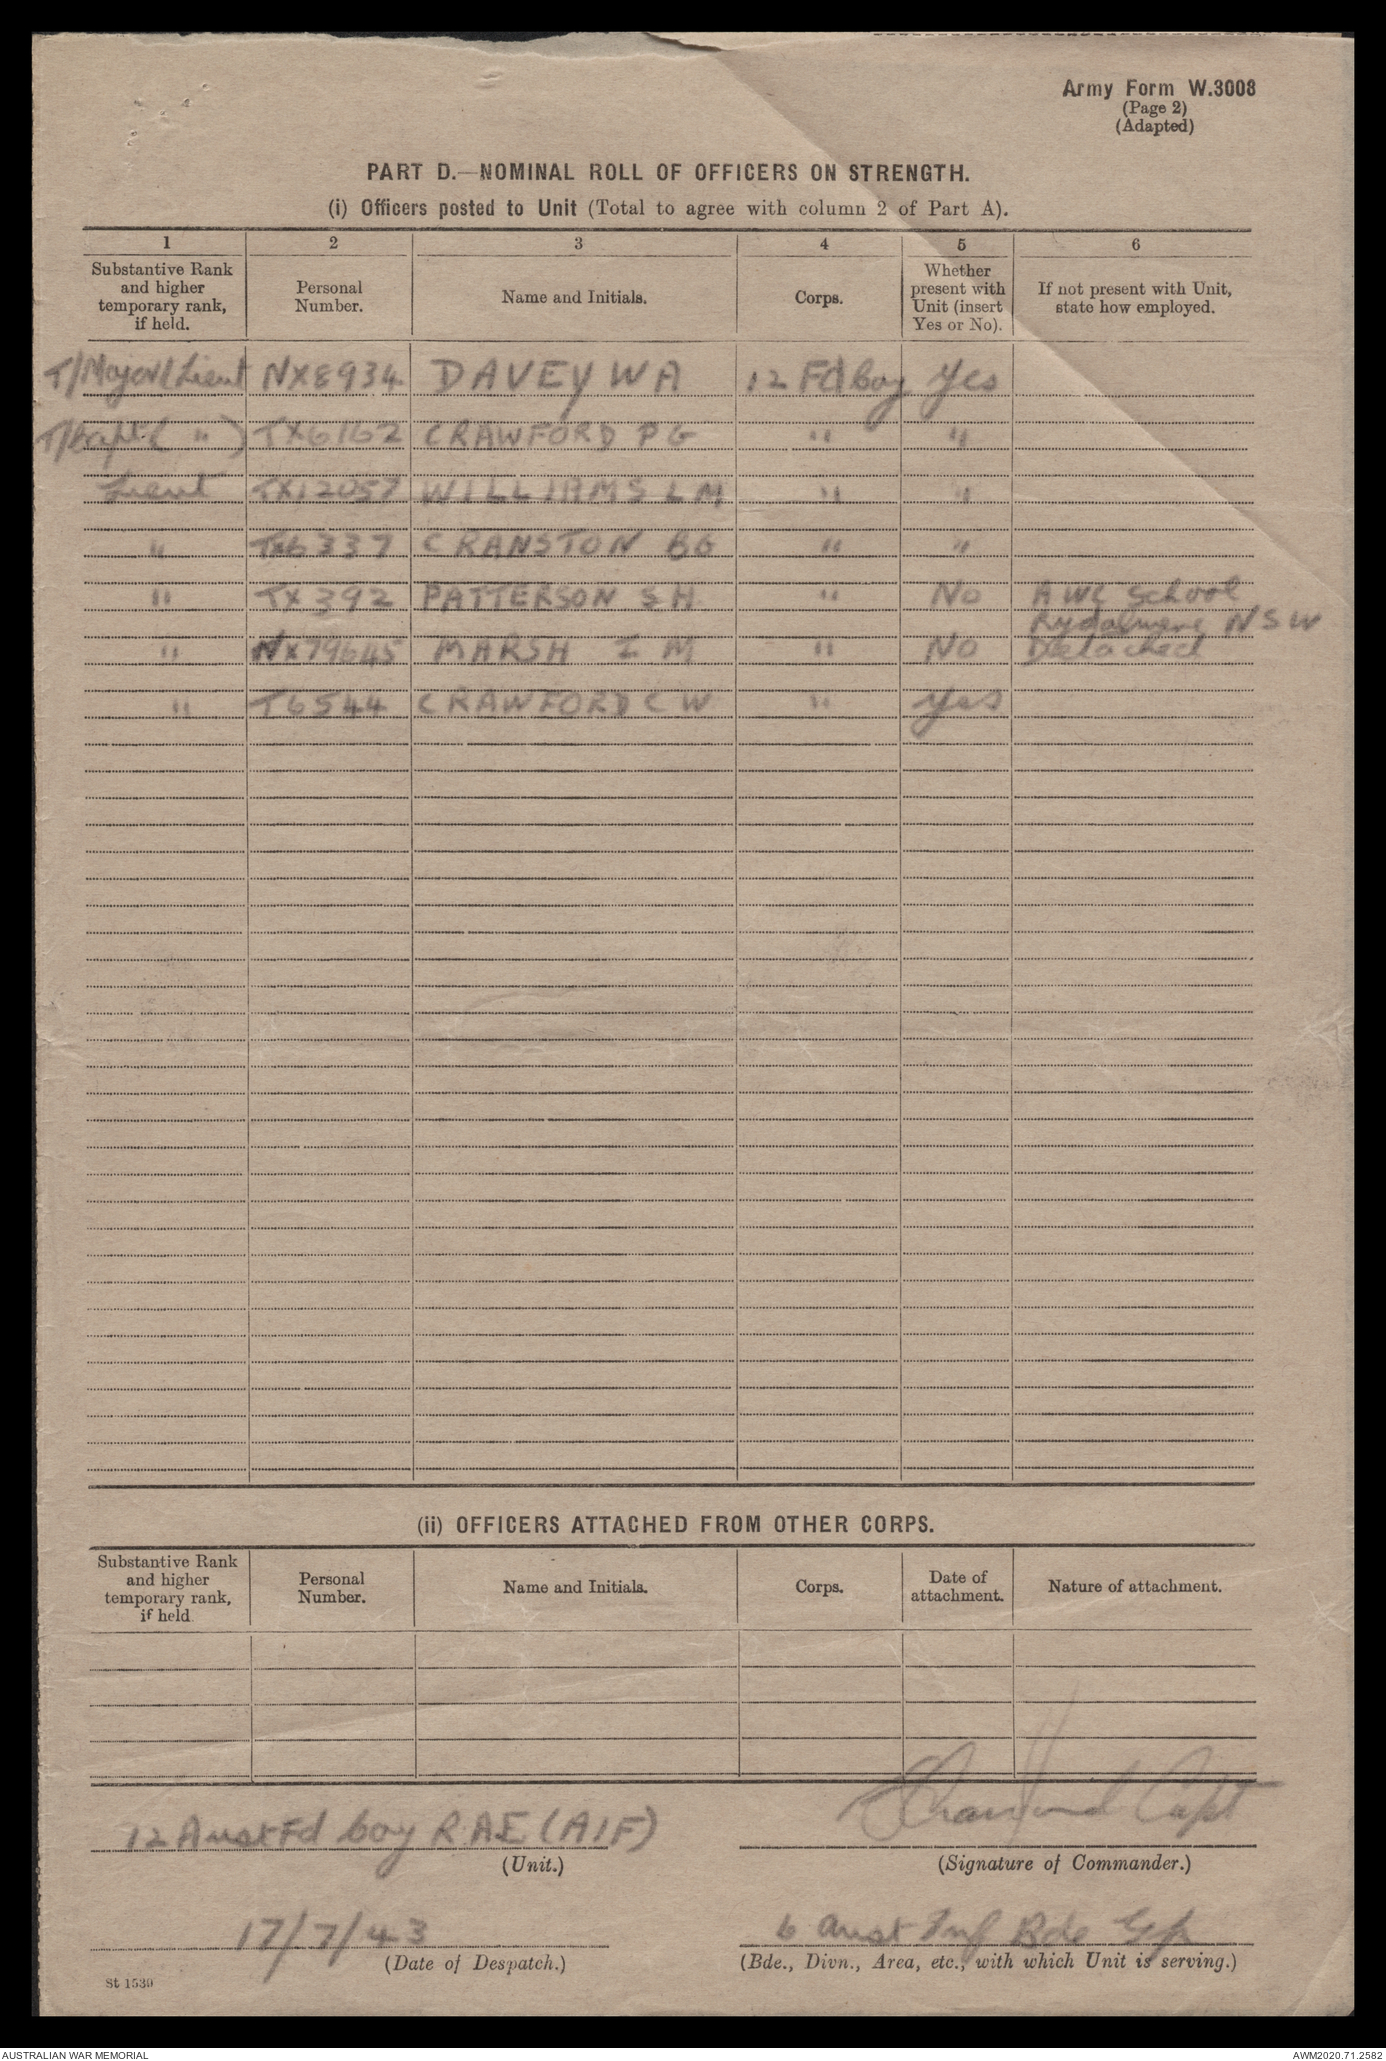 Army Form W.3008
(Page 2)
(Adapted)
PART D.—NOMINAL ROLL OF OFFICERS ON STRENGTH.
(i) Officers posted to Unit (Total to agree with column 2 of Part A).
1 2 3 4 5 6
Substantive Rank and higher temporary rank, if held. Personal Number. Name and Initials. Corps. Whether present with Unit (insert Yes or No). If not present with Unit, state how employed.
T/Major (Lieut NX8934 DAVEY W A 12 Fd Coy Yes
T/Capt ( " ) TX6162 CRAWFORD P G " "
Lieut TX12057 WILLIAMS L M " "
" TX6337 CRANSTON B G " "
" TX392 PATTERSON S H " No AWC School
Rydalmere NSW
" NX79645 MARSH I M " NO Detached
" T6544 CRAWFORD C W " Yes
(ii) OFFICERS ATTACHED FROM OTHER CORPS.
Substantive Rank and higher temporary rank, if held Personal Number. Name and Initials. Corps. Date of attachment. Nature of attachment.
Capt
12 Aust Fd Coy R.A.E (AIF)
(Unit.) (Signature of Commander.)
17/7/43 6 Aust Inf Bde Gp
(Date of Despatch.) (Bde., Divn., Area, etc., with which Unit is serving.)
St 1530
AUSTRALIAN WAR MEMORIAL AWM2020.71.2582